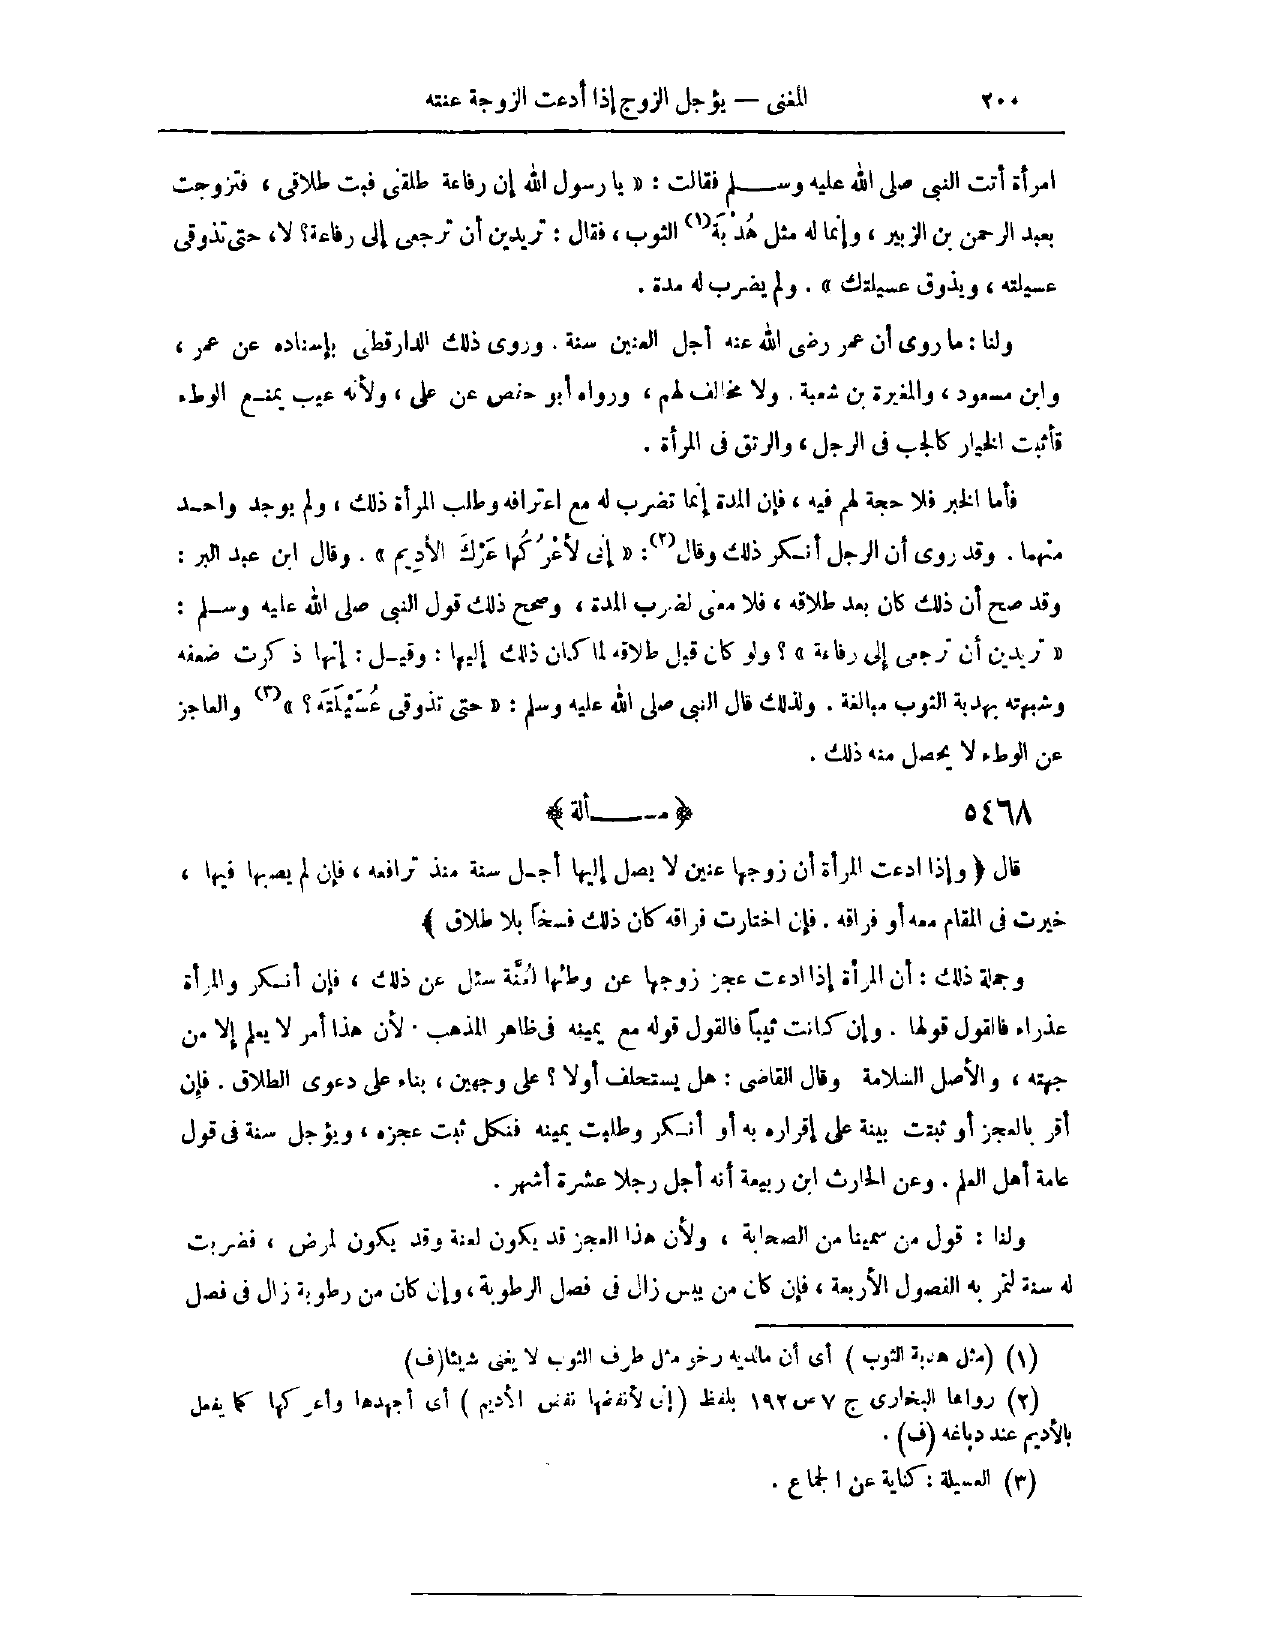 ٢٠٠ المغنى — يؤجل الزوج إذا أدعت الزوجة عنته
امرأة أتت النبى صلى الله عليه وسلم فقالت : « يا رسول الله إن رفاعة طلقنى فبت طلاقى ، فتزوجت
بعبد الرحمن بن الزبير ، وإنما له مثل هُدْبَة(١) الثوب ، فقال : تريدين أن ترجعى إلى رفاعة؟ لا، حتى تذوقى
عسيلته ، ويذوق عسيلتك » . ولم يضرب له مدة .
ولنا : ما روى أن عمر رضى الله عنه أجل العنين سنة . وروى ذلك الدارقطنى بإسناده عن عمر ،
وابن مسعود ، والمغيرة بن شعبة . ولا مخالف لهم ، ورواه أبو حفص عن على ، ولأنه عيب يمنع الوطء
فأثبت الخيار كالجب فى الرجل ، والرتق فى المرأة .
فأما الخبر فلا حجة لهم فيه ، فإن المدة إنما تضرب له مع اعترافه وطلب المرأة ذلك ، ولم يوجد واحد
منهما . وقد روى أن الرجل أنكر ذلك وقال(٢) : « إنى لأعْرُكُها عَرْكَ الأدِيم » . وقال ابن عبد البر :
وقد صح أن ذلك كان بعد طلاقه ، فلا معنى لضرب المدة ، وصحح ذلك قول النبى صلى الله عليه وسلم :
« تريدين أن ترجعى إلى رفاعة » ؟ ولو كان قبل طلاقه لما كان ذلك إليها : وقيل : إنها ذكرت ضعفه
وشبهته بهدبة الثوب مبالغة . ولذلك قال النبى صلى الله عليه وسلم : « حتى تذوقى عُسَيْلَتَه ؟ »(٣) والعاجز
عن الوطء لا يحصل منه ذلك .
٥٤٦٨ ﴿ مسألة ﴾
قال ﴿ وإذا ادعت المرأة أن زوجها عنين لا يصل إليها أجل سنة منذ ترافعه ، فإن لم يصبها فيها ،
خيرت فى المقام معه أو فراقه . فإن اختارت فراقه كان ذلك فسخاً بلا طلاق ﴾
وجملة ذلك : أن المرأة إذا ادعت عجز زوجها عن وطئها لعُنَّة سئل عن ذلك ، فإن أنكر والمرأة
عذراء فالقول قولها . وإن كانت ثيباً فالقول قوله مع يمينه فى ظاهر المذهب . لأن هذا أمر لا يعلم إلا من
جهته ، والأصل السلامة وقال القاضى : هل يستحلف أولا ؟ على وجهين ، بناء على دعوى الطلاق . فإن
أقر بالعجز أو ثبتت بينة على إقراره به أو أنكر وطلبت يمينه فنكل ثبت عجزه ، ويؤجل سنة فى قول
عامة أهل العلم . وعن الحارث ابن ربيعة أنه أجل رجلا عشرة أشهر .
ولنا : قول من سمينا من الصحابة ، ولأن هذا العجز قد يكون لعنة وقد يكون لمرض ، فضربت
له سنة لتمر به الفصول الأربعة ، فإن كان من يبس زال فى فصل الرطوبة ، وإن كان من رطوبة زال فى فصل
(١) (مثل هدبة الثوب ) أى أن مالديه رخو مثل طرف الثوب لا يغنى شيئا(ف)
(٢) رواها البخارى ج ٧ ص ١٩٢ بلفظ (إنى لأنفضها نفض الأديم ) أى أجهدها وأعركها كما يفعل
بالأديم عند دباغه (ف) .
(٣) العسيلة : كناية عن الجماع .